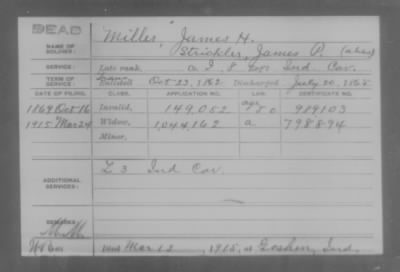 DEAD
NAME OF SOLDIER: Miller, James H.
Strickler, James P. (alias)
SERVICE: Late rank, Ind. Cav.
TERM OF SERVICE: Enlisted Oct 23, 1862 Discharged July 20, 1865
DATE OF FILING. CLASS. APPLICATION NO. LAW. CERTIFICATE NO.
1869 Oct 16 Invalid, 149,052 989103
1915 Mar 24 Widow, 1,044,162 a 798894
Minor,
ADDITIONAL SERVICES: L 3 Ind Cav
REMARKS:
Died Mar 12, 1915, at Goshen, Ind.